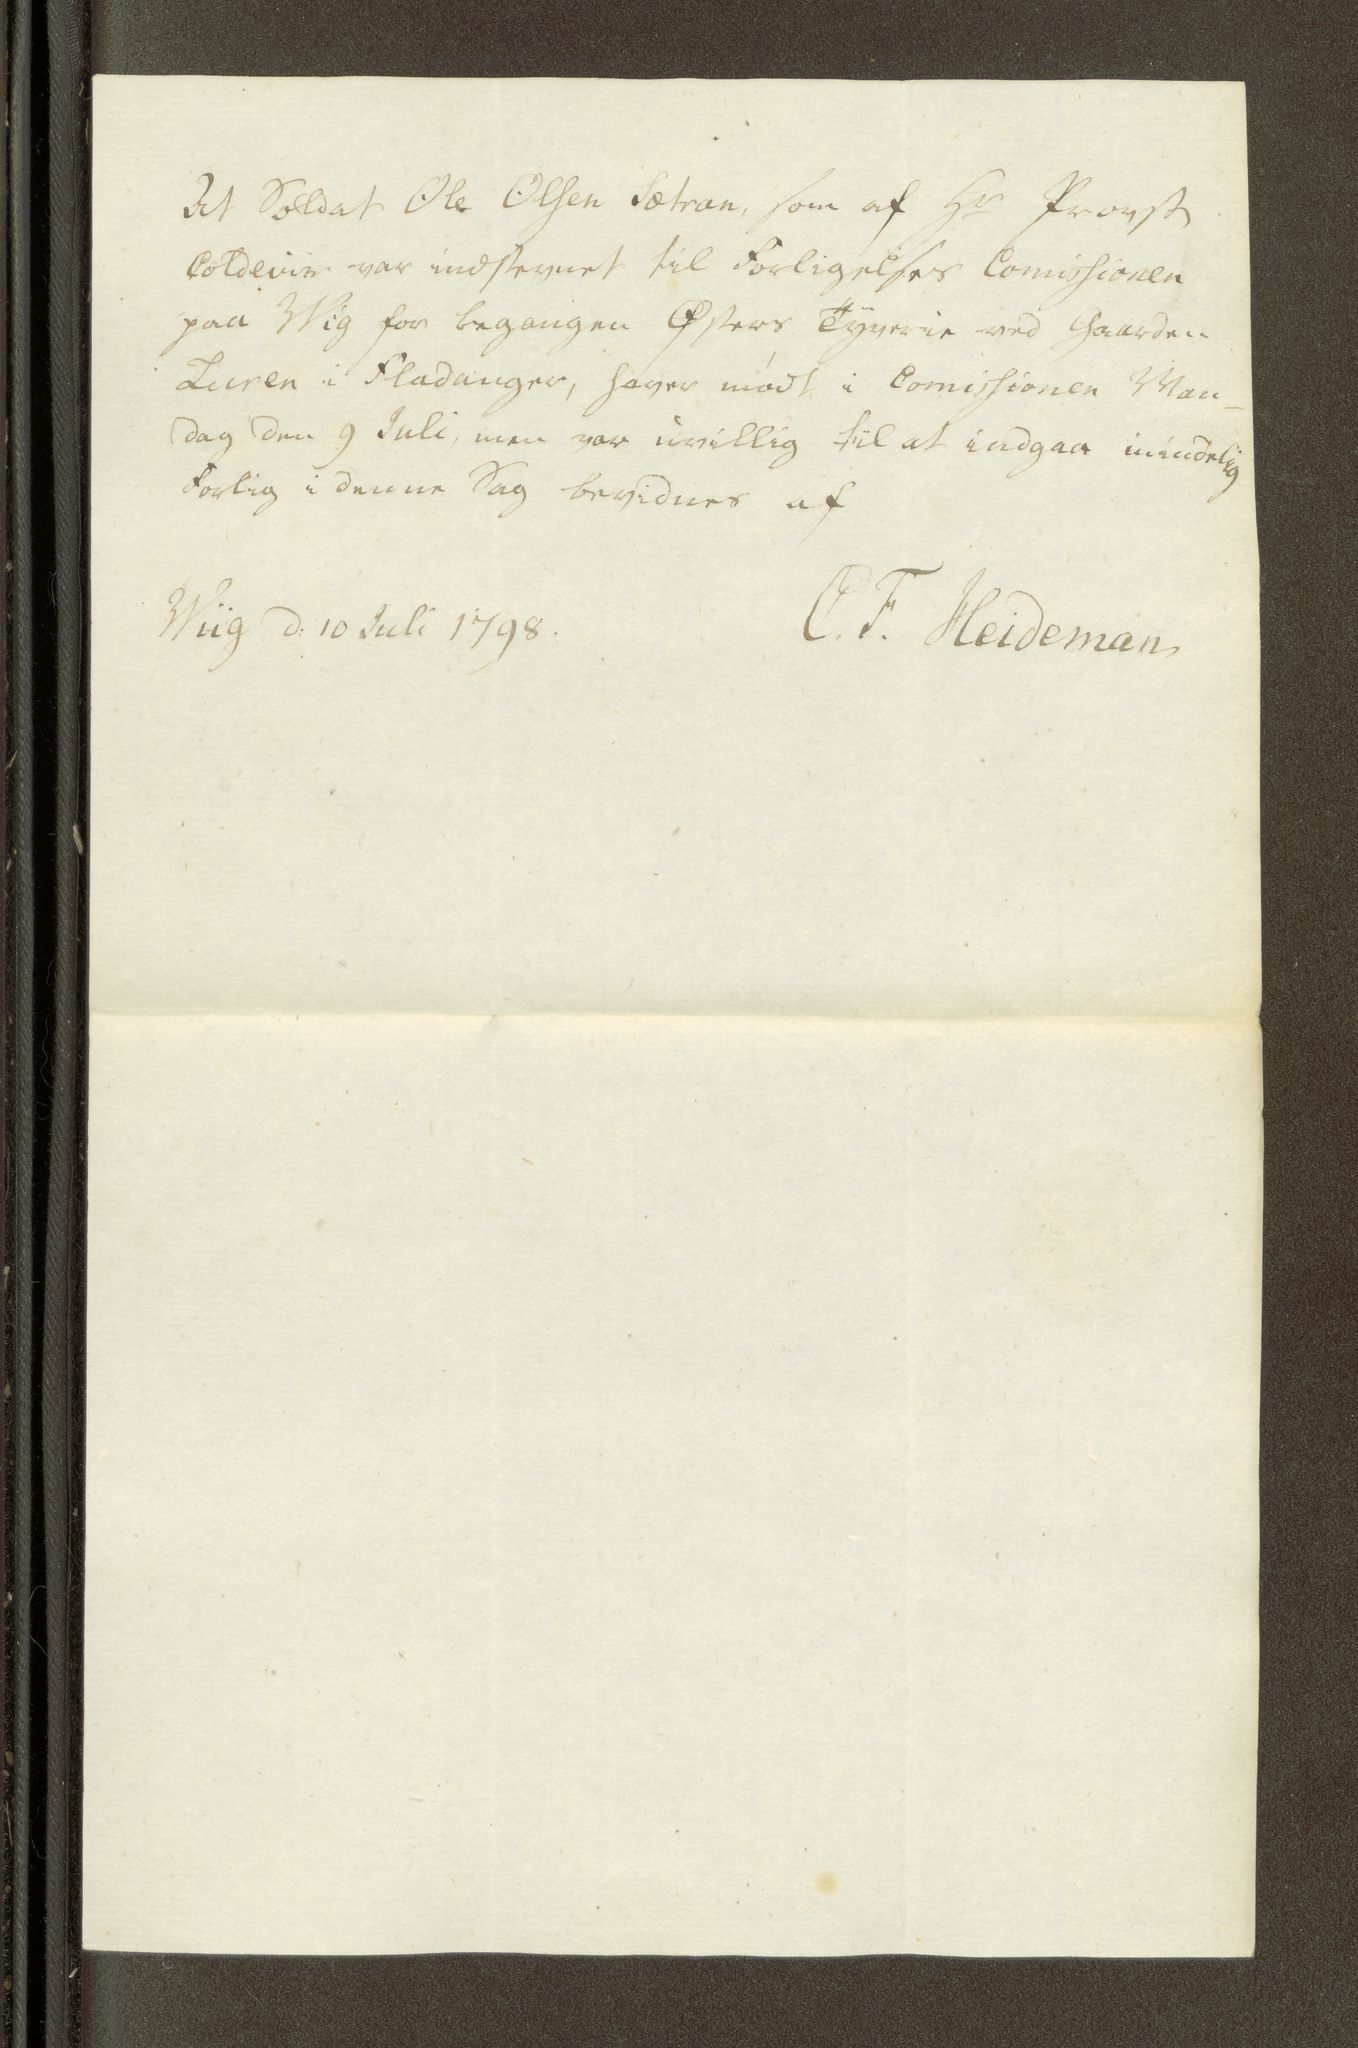 At Soldat Ole Olsen Sætran, som af Hr Provst
Coldevin var indstevnet til Forligelses Comissionen
paa Wiig for begangen Østers Tyverie ved Gaarden
Lucen i Fladanger, haver mødt i Comissionen Man-
dag den 9 Juli, men var uvillig til at indgaa mindelig
Forlig i denne Sag bevidnes af
Wiig d: 10 Juli 1798.
C. F. Heideman